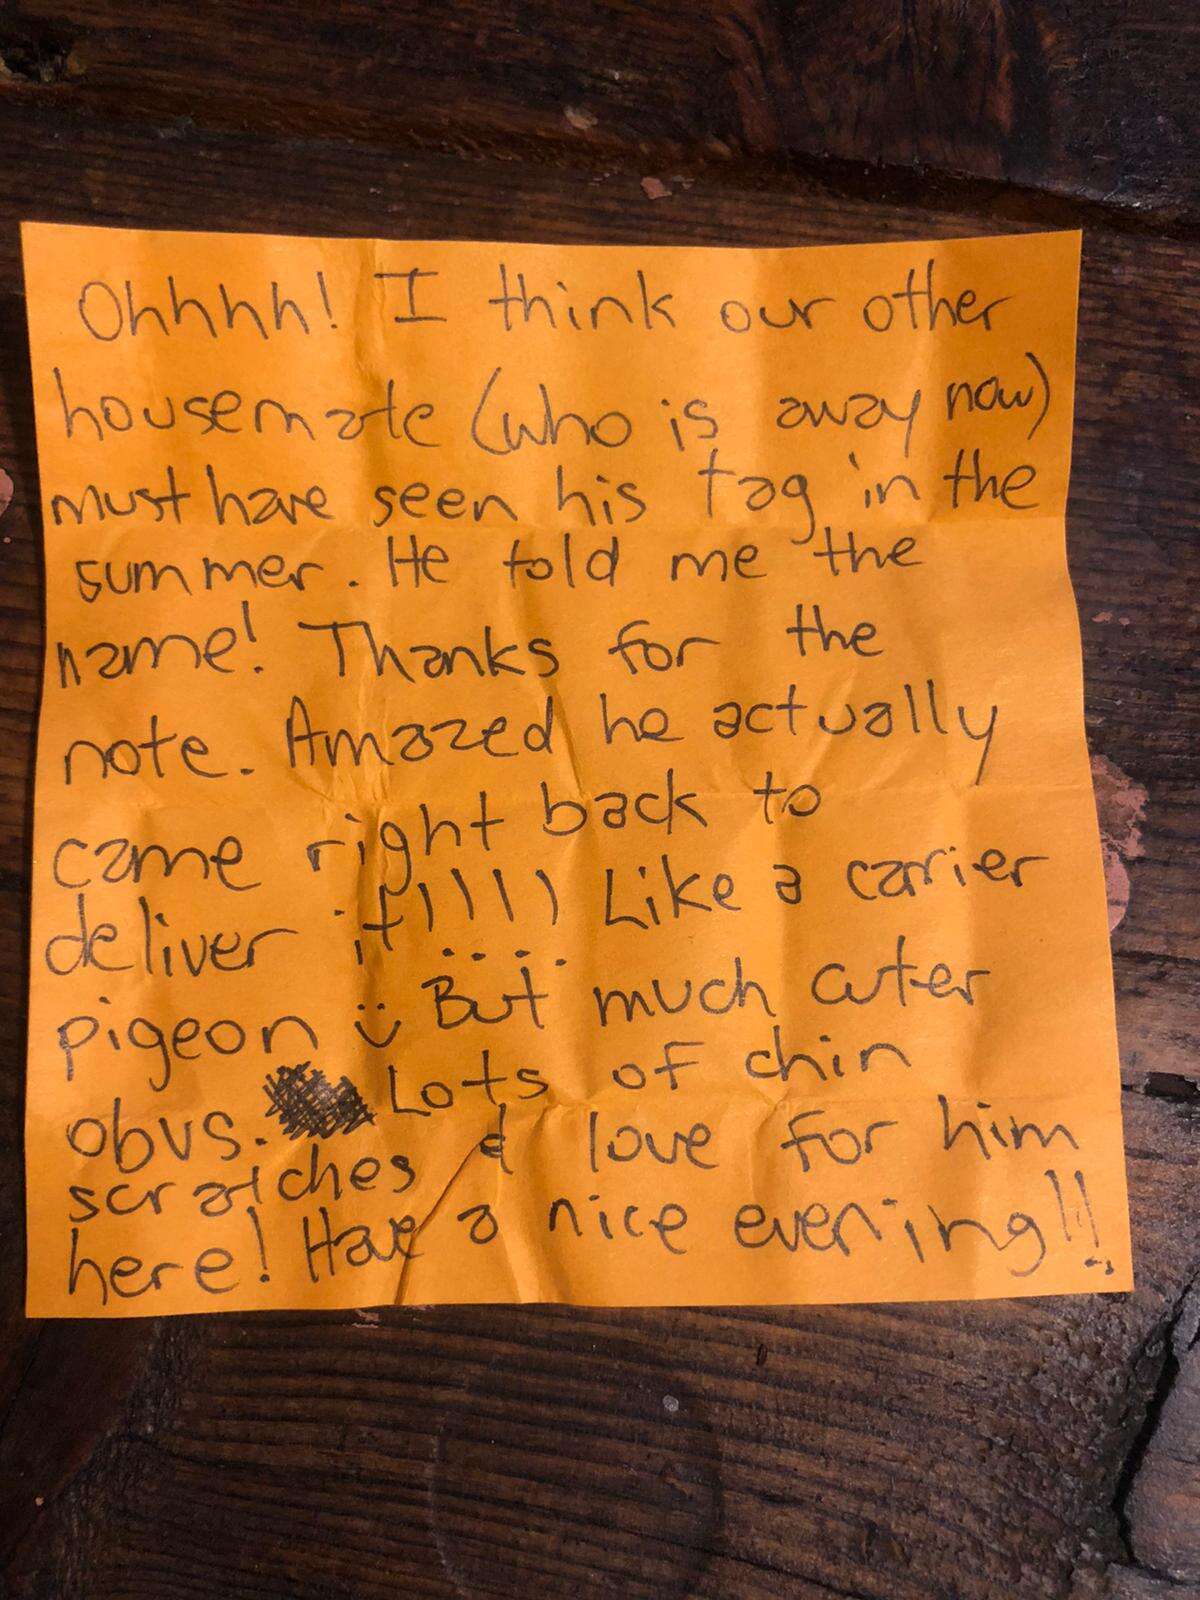 Ohhhh! I think our other
housemate (who is away now)
must have seen his tag in the
summer. He told me the
name! Thanks for the
note. Amazed he actually
came right back to
deliver it!!!! Like a carrier
pigeon :) But much cuter
obvs. Lots of chin
scratches & love for him
here! Have a nice evening!!